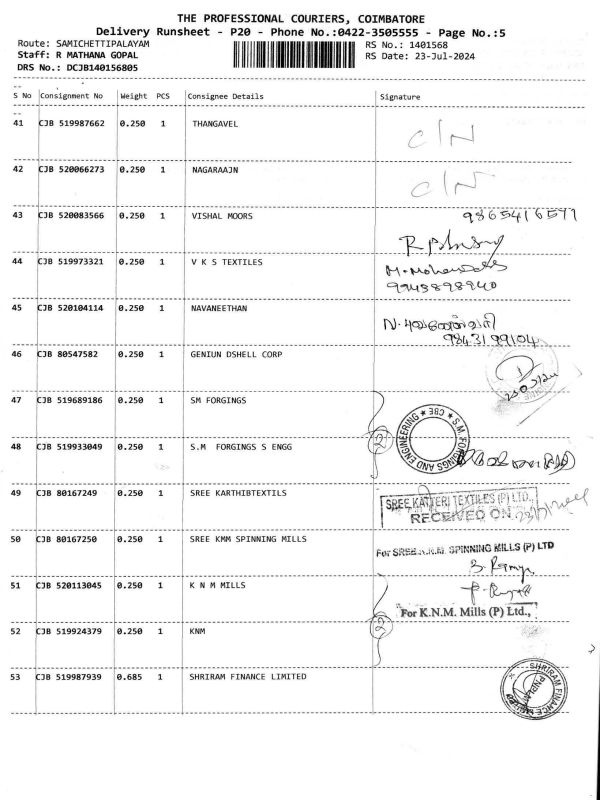 THE PROFESSIONAL COURIERS, COIMBATORE
Delivery Runsheet - P20 - Phone No.:0422-3505555 - Page No.:5
Route: SAMICHETTIPALAYAM RS No.: 1401568
Staff: R MATHANA GOPAL RS Date: 23-Jul-2024
DRS No.: DCJB140156805
S No Consignment No Weight PCS Consignee Details Signature
41 CJB 519987662 0.250 1 THANGAVEL C/N
42 CJB 520066273 0.250 1 NAGARAAJN C/N
43 CJB 520083566 0.250 1 VISHAL MOORS 9865416577
44 CJB 519973321 0.250 1 V K S TEXTILES
9945898940
45 CJB 520104114 0.250 1 NAVANEETHAN
9843199104
46 CJB 80547582 0.250 1 GENIUN DSHELL CORP
47 CJB 519689186 0.250 1 SM FORGINGS
48 CJB 519933049 0.250 1 S.M FORGINGS S ENGG 2
S.M. FORGINGS AND ENGINEERING ★ CBE ★
49 CJB 80167249 0.250 1 SREE KARTHIBTEXTILS
SREE KATTERI TEXTILES (P) LTD.,
RECEIVED ON
50 CJB 80167250 0.250 1 SREE KMM SPINNING MILLS
For SREE K.N.M. SPINNING MILLS (P) LTD
S. Ramya
51 CJB 520113045 0.250 1 K N M MILLS
For K.N.M. Mills (P) Ltd.,
52 CJB 519924379 0.250 1 KNM 2
53 CJB 519987939 0.685 1 SHRIRAM FINANCE LIMITED
SHRIRAM FINANCE LIMITED